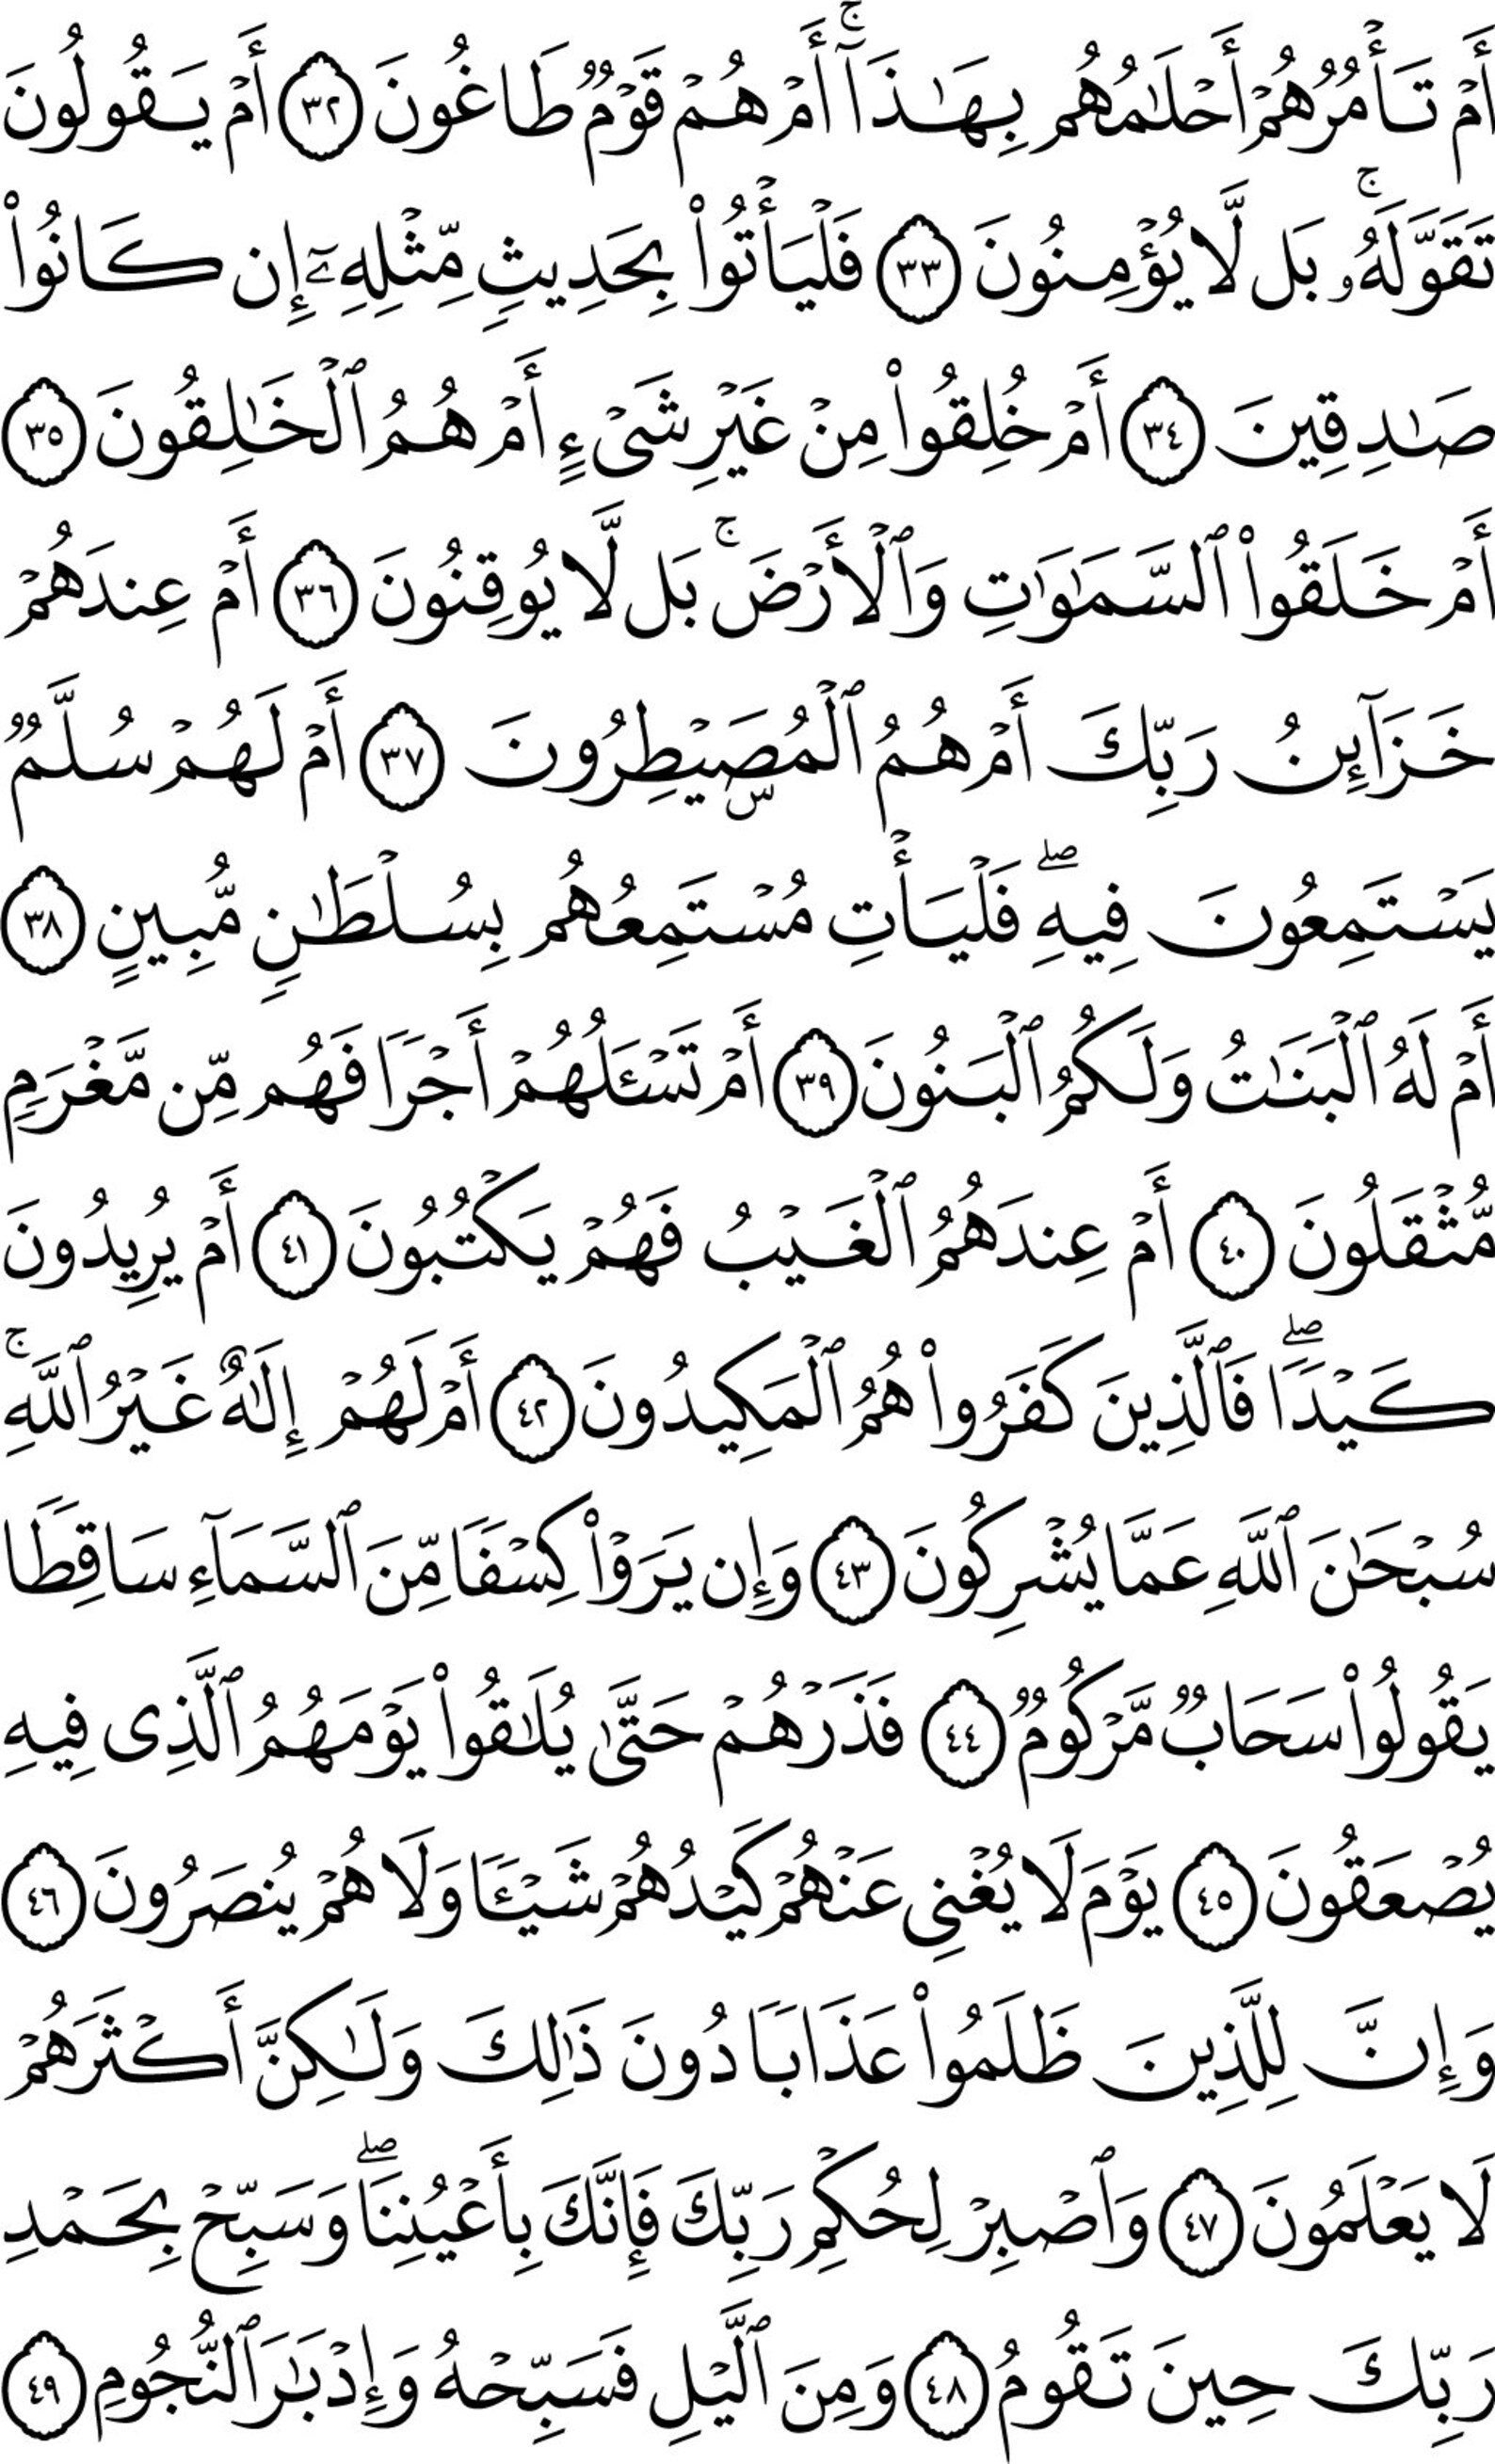 أَمۡ تَأۡمُرُهُمۡ أَحۡلَٰمُهُم بِهَٰذَآۚ أَمۡ هُمۡ قَوۡمٞ طَاغُونَ ٣٢ أَمۡ يَقُولُونَ
تَقَوَّلَهُۥۚ بَل لَّا يُؤۡمِنُونَ ٣٣ فَلۡيَأۡتُواْ بِحَدِيثٖ مِّثۡلِهِۦٓ إِن كَانُواْ
صَٰدِقِينَ ٣٤ أَمۡ خُلِقُواْ مِنۡ غَيۡرِ شَيۡءٍ أَمۡ هُمُ ٱلۡخَٰلِقُونَ ٣٥
أَمۡ خَلَقُواْ ٱلسَّمَٰوَٰتِ وَٱلۡأَرۡضَۚ بَل لَّا يُوقِنُونَ ٣٦ أَمۡ عِندَهُمۡ
خَزَآئِنُ رَبِّكَ أَمۡ هُمُ ٱلۡمُصَۜيۡطِرُونَ ٣٧ أَمۡ لَهُمۡ سُلَّمٞ
يَسۡتَمِعُونَ فِيهِۖ فَلۡيَأۡتِ مُسۡتَمِعُهُم بِسُلۡطَٰنٖ مُّبِينٍ ٣٨
أَمۡ لَهُ ٱلۡبَنَٰتُ وَلَكُمُ ٱلۡبَنُونَ ٣٩ أَمۡ تَسۡـَٔلُهُمۡ أَجۡرٗا فَهُم مِّن مَّغۡرَمٖ
مُّثۡقَلُونَ ٤٠ أَمۡ عِندَهُمُ ٱلۡغَيۡبُ فَهُمۡ يَكۡتُبُونَ ٤١ أَمۡ يُرِيدُونَ
كَيۡدٗاۖ فَٱلَّذِينَ كَفَرُواْ هُمُ ٱلۡمَكِيدُونَ ٤٢ أَمۡ لَهُمۡ إِلَٰهٌ غَيۡرُ ٱللَّهِۚ
سُبۡحَٰنَ ٱللَّهِ عَمَّا يُشۡرِكُونَ ٤٣ وَإِن يَرَوۡاْ كِسۡفٗا مِّنَ ٱلسَّمَآءِ سَاقِطٗا
يَقُولُواْ سَحَابٞ مَّرۡكُومٞ ٤٤ فَذَرۡهُمۡ حَتَّىٰ يُلَٰقُواْ يَوۡمَهُمُ ٱلَّذِي فِيهِ
يُصۡعَقُونَ ٤٥ يَوۡمَ لَا يُغۡنِي عَنۡهُمۡ كَيۡدُهُمۡ شَيۡـٔٗا وَلَا هُمۡ يُنصَرُونَ ٤٦
وَإِنَّ لِلَّذِينَ ظَلَمُواْ عَذَابٗا دُونَ ذَٰلِكَ وَلَٰكِنَّ أَكۡثَرَهُمۡ
لَا يَعۡلَمُونَ ٤٧ وَٱصۡبِرۡ لِحُكۡمِ رَبِّكَ فَإِنَّكَ بِأَعۡيُنِنَاۖ وَسَبِّحۡ بِحَمۡدِ
رَبِّكَ حِينَ تَقُومُ ٤٨ وَمِنَ ٱلَّيۡلِ فَسَبِّحۡهُ وَإِدۡبَٰرَ ٱلنُّجُومِ ٤٩